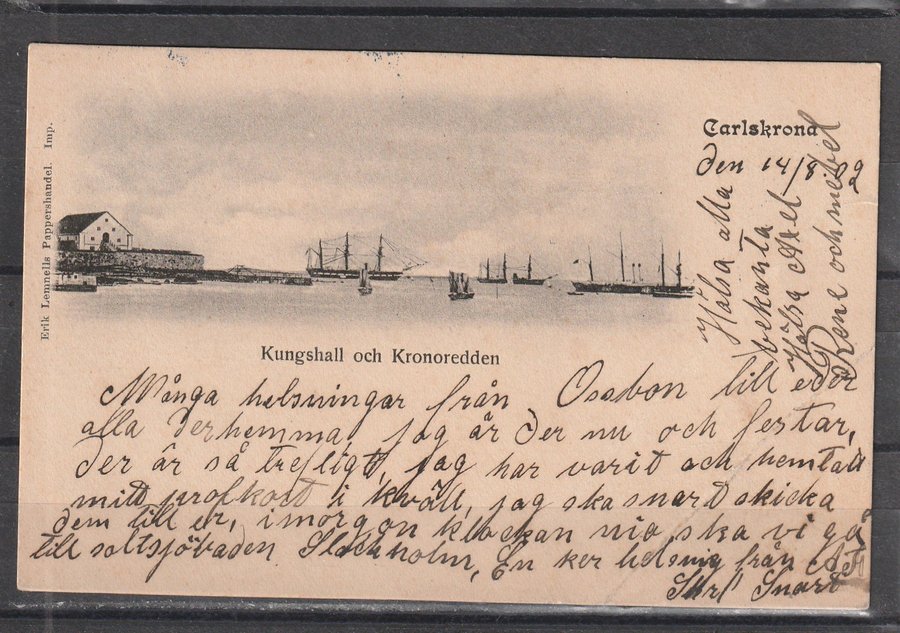 Erik Lemnells Pappershandel. Imp.
Carlskrona
den 14/8 02
Helsa alla
bekanta
Hälsa Axel
Rene och
Kungshall och Kronoredden
Många helsningar från till eder
alla derhemma, jag är der nu och festar,
der är så trefligt, jag har varit och hemtatt
mitt profkort i kväll, jag ska snart skicka
dem till er, imorgon klockan nio ska vi gå
till saltsjöbaden Stockholm, En ker helsning från
Skrif Snart